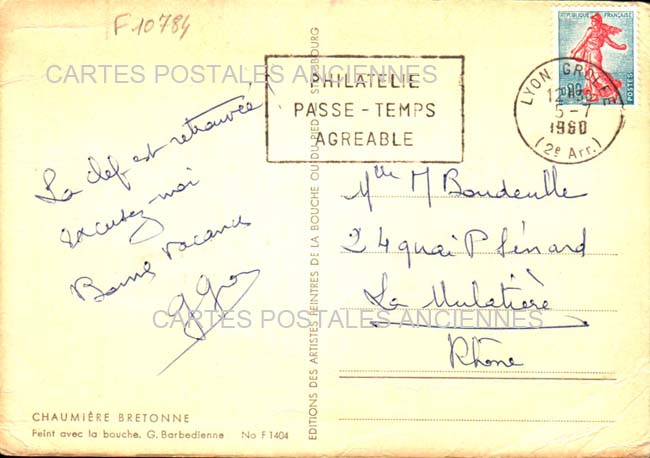 F 10784
CARTES POSTALES ANCIENNES
PHILATELIE
PASSE-TEMPS
AGREABLE
REPUBLIQUE FRANÇAISE
POSTES
LYON
5-7
1960
(2e Arr.)
La clef est retrouvée!
excusez-moi
Bonnes vacances
Mlle M
24 quai P Sénard
La Mulatière
Rhône
CARTES POSTALES ANCIENNES
EDITIONS DES ARTISTES PEINTRES DE LA BOUCHE OU DU PIED STRASBOURG
CHAUMIÈRE BRETONNE
Peint avec la bouche. G. Barbedienne No F 1404